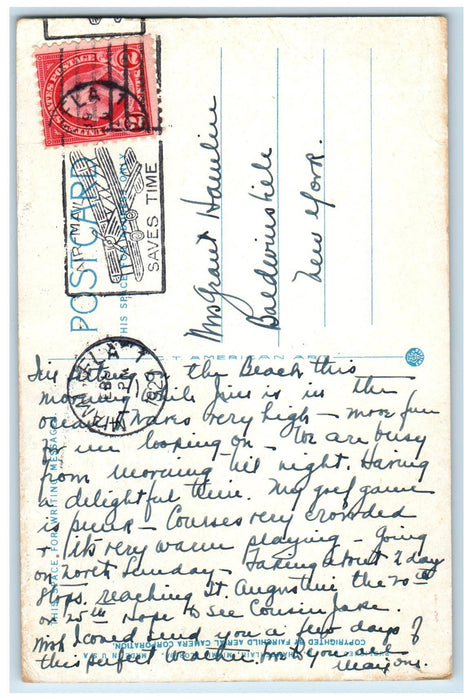 UNITED STATES POSTAGE
2
AIR MAIL
SAVES TIME
POSTCARD
THIS SPACE FOR ADDRESS ONLY
Mrs Grant Hamline
Baldwinsville
New York.
MIAMI FLA
FEB
1929
T AMERICAN ART
THIS SPACE FOR WRITING MESSAGES
I'm sitting the Beach this
morning while Jim is in the
ocean. Waves very high - more fun
for me looking on - We are busy
from morning til night. Having
a delightful time. My golf game
is punk - Courses very crowded
+ it's very warm playing - Going
on north Sunday - Taking about 2 day
stops. reaching St. Augustine the 20th
or 25th Hope to see Cousin Jake.
Wish I could send you a few days of
this perfect weather.
Marions.
COPYRIGHTED BY FAIRCHILD AERIAL CAMERA CORPORATION.
MADE IN U.S.A.